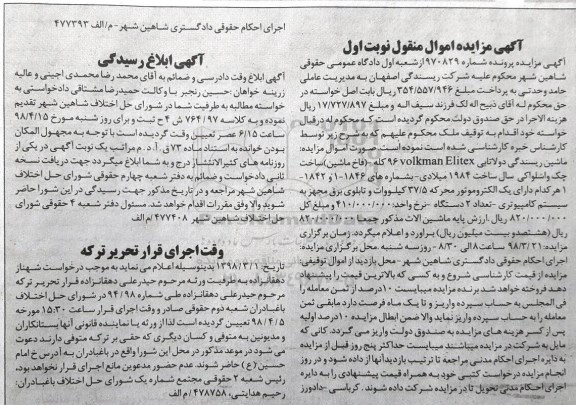 آگهی مزایده اموال منقول نوبت اول
آگهی مزایده پرونده شماره ۹۷۰۸۲۹ از شعبه اول دادگاه عمومی حقوقی
شاهین شهر محکوم علیه شرکت ریسندگی اصفهان به مدیریت عاملی
حامد وحدتی به پرداخت مبلغ ۳۵۴/۵۵۷/۹۴۶ ریال بابت اصل خواسته در
حق محکوم له آقای ذبیح اله لک فرزند سیف اله و مبلغ ۱۷/۷۲۷/۸۹۷ ریال
هزینه الاجرا در حق صندوق دولت محکوم گردیده است که محکوم له در قبال
خواسته خود اقدام به توقیف ملک محکوم علیهم که به شرح زیر توسط
کارشناس خبره کارشناسی شده است نموده است. صورت اموال مزایده:
ماشین ریسندگی دولاتابی volkman Elitex ۹۶ کله - (فاخ ماشین) ساخت
چک واشلواکی سال ساخت ۱۹۸۴ میلادی - بشماره های ۱۸۴۶-۱ و ۱۸۴۲-
۱ هر کدام دارای یک الکتروموتور محرکه ۳۷/۵ کیلووات و تابلوی برق مجهز به
سیستم کامپیوتری - تعداد ۲ دستگاه - نرخ واحد: ۴۱۰/۰۰۰/۰۰۰ و مبلغ کل
۸۲۰/۰۰۰/۰۰۰ ریال. ارزش پایه ماشین الات مذکور جمعا ۸۲۰/۰۰۰/۰۰۰
ریال (هشتصدو بیست میلیون ریال) برآورد و اعلام میگردد. زمان برگزاری
مزایده: ۹۸/۳/۲۱ ساعت ۸ الی ۸/۳۰ - روز سه شنبه محل برگزاری مزایده:
اجرای احکام حقوقی دادگستری شاهین شهر - محل بازدید از اموال توقیفی:
مزایده از قیمت کارشناسی شروع و به کسی که بالاترین قیمت را پیشنهاد
دهد فروخته خواهد شد برنده مزایده میبایست ۱۰ درصد از ثمن معامله را
فی المجلس به حساب سپرده واریز و تا یک ماه فرصت دارد مابقی ثمن
معامله را به حساب سپرده واریز نماید والا ضمن ابطال مزایده ۱۰ درصد اولیه
پس از کسر هزینه های مزایده به صندوق دولت واریز می گردد. کسانی که
مایل به شرکت در مزایده میباشند میبایست حداکثر پنج روز قبل از مزایده
به دایره اجرای احکام مدنی مراجعه تا ترتیب بازدید آنها از داده شود و در روز
انجام مزایده درخواست کتبی خود به همراه فیش قیمت پیشنهادی را به دایره
اجرای احکام مدنی تحویل تا در مزایده شرکت داده شوند. کرباسی - دادورز
اجرای احکام حقوقی دادگستری شاهین شهر - م/الف ۴۷۷۳۹۳
آگهی ابلاغ رسیدگی
آگهی ابلاغ وقت دادرسی و ضمائم به آقای محمد رضا محمدی اچینی و عالیه
زرینه خواهان: حسین رنجبر با وکالت حمیدرضا مشتاقی دادخواستی به
خواسته مطالبه به طرفیت شما در شورای حل اختلاف شاهین شهر تقدیم
نموده و به کلاسه ۷۶۴/۹۷ ش ۴ ح ثبت و برای روز شنبه مورخ ۹۸/۴/۱۵
ساعت ۶/۱۵ عصر تعیین وقت گردیده است با توجه به مجهول المکان
بودن خوانده به استناد ماده ۷۳ ق. آ. د. م مراتب یک نوبت آگهی در یکی از
روزنامه های کثیرالانتشار درج و به شما ابلاغ میگردد جهت دریافت نسخه
ثانی دادخواست و ضمائم به دفتر شعبه چهارم حقوقی شورای حل اختلاف
شاهین شهر مراجعه و در تاریخ مذکور جهت رسیدگی در این شورا حاضر
شوید والا وفق مقررات اقدام خواهد شد. مسئول دفتر شعبه ۴ حقوقی شورای
حل اختلاف شاهین شهر ۴۷۷۴۰۸ /م الف
وقت اجرای قرار تحریر ترکه
تاریخ: ۱۳۹۸/۳/۱ بدینوسیله اعلام می نماید به موجب درخواست شهناز
دهقانزاده به طرفیت ورثه مرحوم حیدرعلی دهقانزاده قرار تحریر ترکه
مرحوم حیدرعلی دهقانزاده طی شماره ۹۴/۹۸ در شورای حل اختلاف
باغبادران شعبه دوم حقوقی صادر و وقت اجرای قرار ساعت ۱۵:۳۰ مورخه
۹۸/۴/۵ تعیین گردیده است لذا از ورثه یا نماینده قانونی آنها بستانکاران
و مدیونین به متوفی و کسان دیگری که حقی بر ترکه متوفی دارند دعوت
می شود در موعد مذکور در محل این شورا واقع در باغبادران به آدرس خ امام
حسین (ع) حاضر شوند. عدم حضور مدعوین مانع اجرای قرار نخواهد بود.
رئیس شعبه ۲ حقوقی مجتمع شماره یک شورای حل اختلاف باغبادران:
رحیم هدایتی، ۴۷۸۷۵۸ /م الف